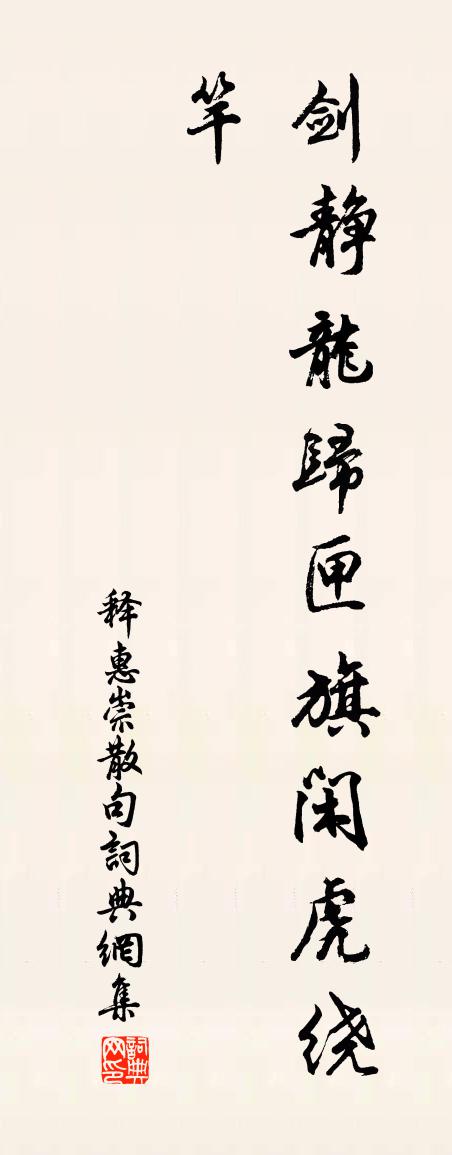 剑静龍歸匣旗闲虎绕
竿
释惠崇散句詞典網集
詞典网印